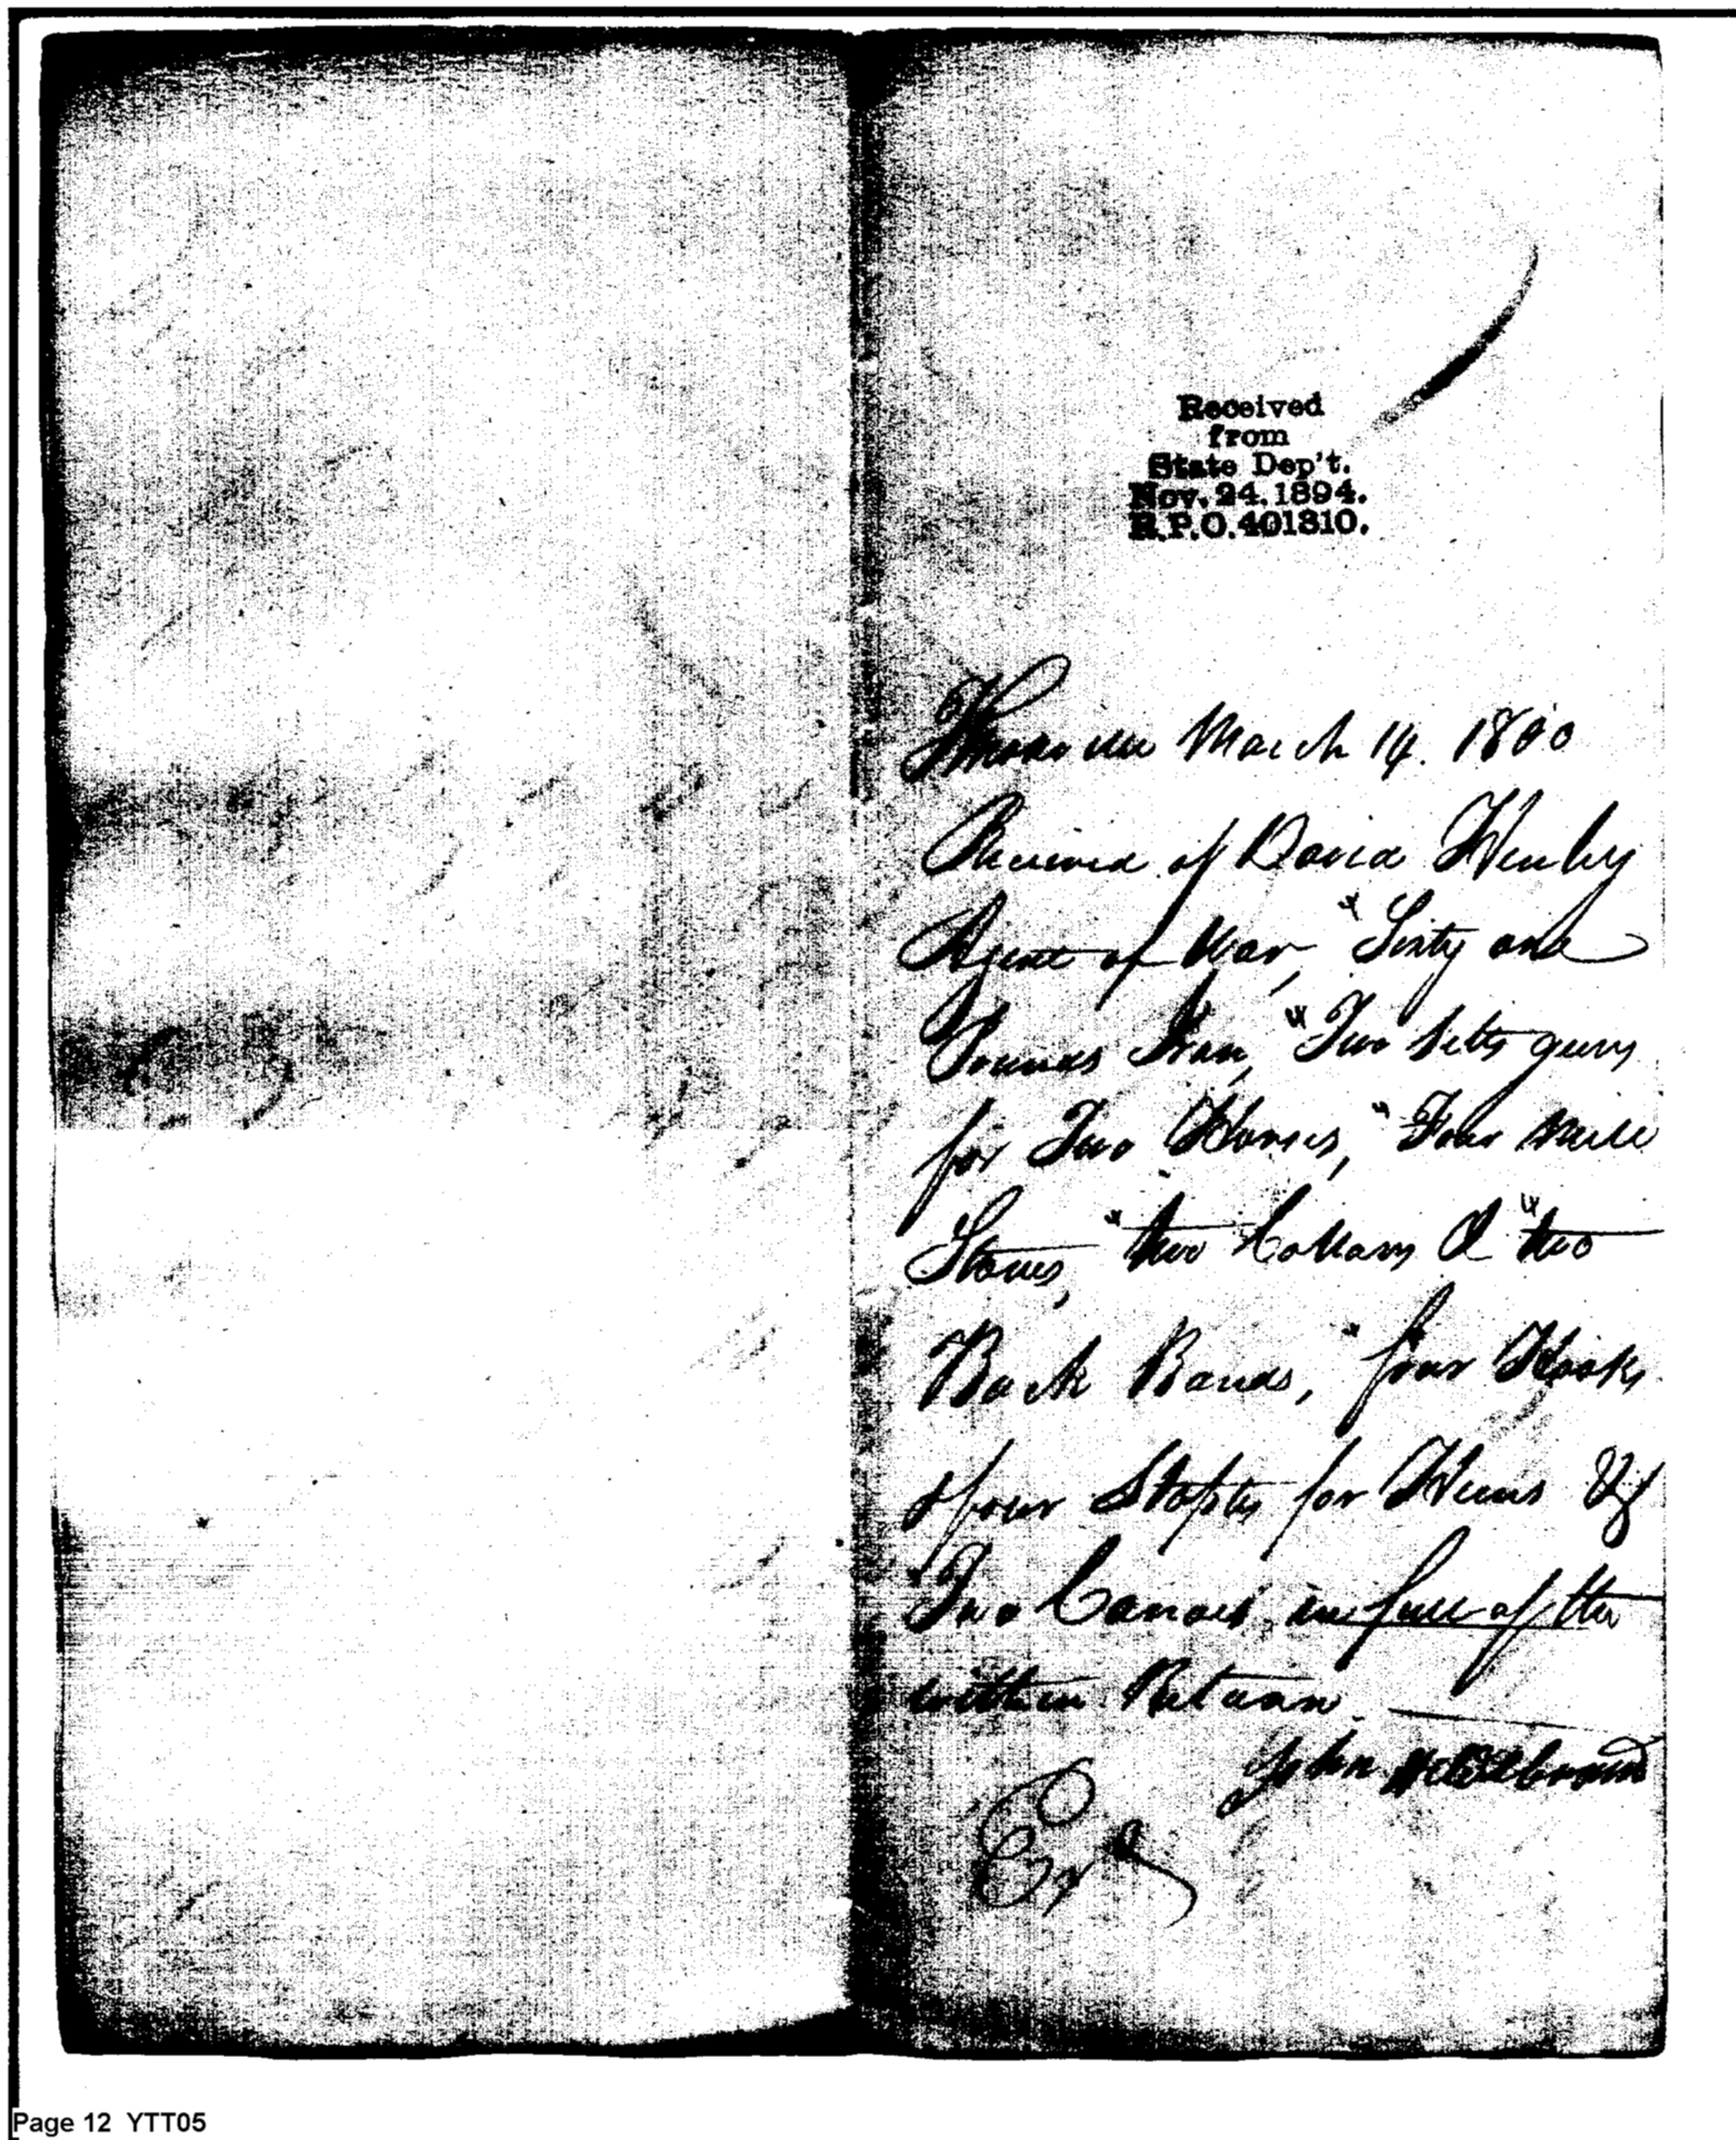 Received
from
State Dep't.
Nov. 24. 1894.
R.P.O. 401310.
Knoxville March 14. 1800
Received of David Henley
Agent of War, " Sixty one
Pounds Iron, " Two Setts gears
for Two Horses, " Four Mill
Stones, " two Collars & " two
Back Bands, " four Hooks
& four Staples for Hems &
Two Canoes in full of the
within Return.
John Hildebrand
Exd
Page 12 YTT05